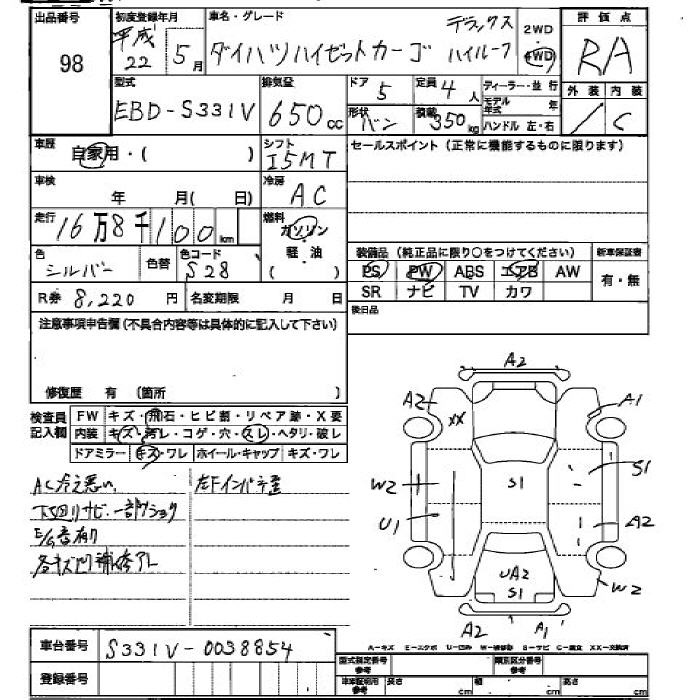 出品番号 98
初度登録年月 平成22年 5月
車名・グレード ダイハツハイゼットカーゴ デラックス ハイルーフ
2WD
4WD
評価点 RA
外装 / 内装 C
型式 EBD-S331V
排気量 650cc
ドア 5
定員 4人
形状 バン
積載 350kg
ディーラー・並行
モデル年式 年
ハンドル 左・右
車歴 自家用・( )
シフト I5MT
セールスポイント(正常に機能するものに限ります)
車検 年 月(日)
冷房 AC
走行 16万8千100km
燃料 ガソリン
軽油
( )
色 シルバー 色替 色コード S28
装備品(純正品に限り○をつけてください)
新車保証書
PS PW ABS エアB AW
有・無
SR ナビ TV カワ
R券 8,220円 名変期限 月 日
後日品
注意事項申告欄(不具合内容等は具体的に記入して下さい)
修復歴 有 (箇所 )
検査員記入欄
FW キズ・飛石・ヒビ割・リペア跡・X要
内装 キズ・汚レ・コゲ・穴・スレ・ヘタリ・破レ
ドアミラー キズ・ワレ ホイール・キャップ キズ・ワレ
AC冷え悪い
下回りサビ、一部クショク
E/G音有り
各キズ凹補修アレ
左Fインパネ歪
A2
A2
XX
A1
W2
S1
S1
U1
A2
UA2
S1
W2
A2
A1
A-キズ E-エクボ U-凹み W-補修跡 S-サビ C-腐食 XX-交換済
車台番号 S331V-0038854
登録番号
型式指定番号 参考
類別区分番号 参考
車庫証明用 参考 長さ cm 幅 cm 高さ cm